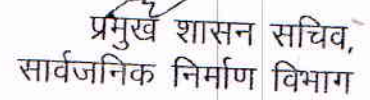 प्रमुख शासन सचिव,
सार्वजनिक निर्माण विभाग